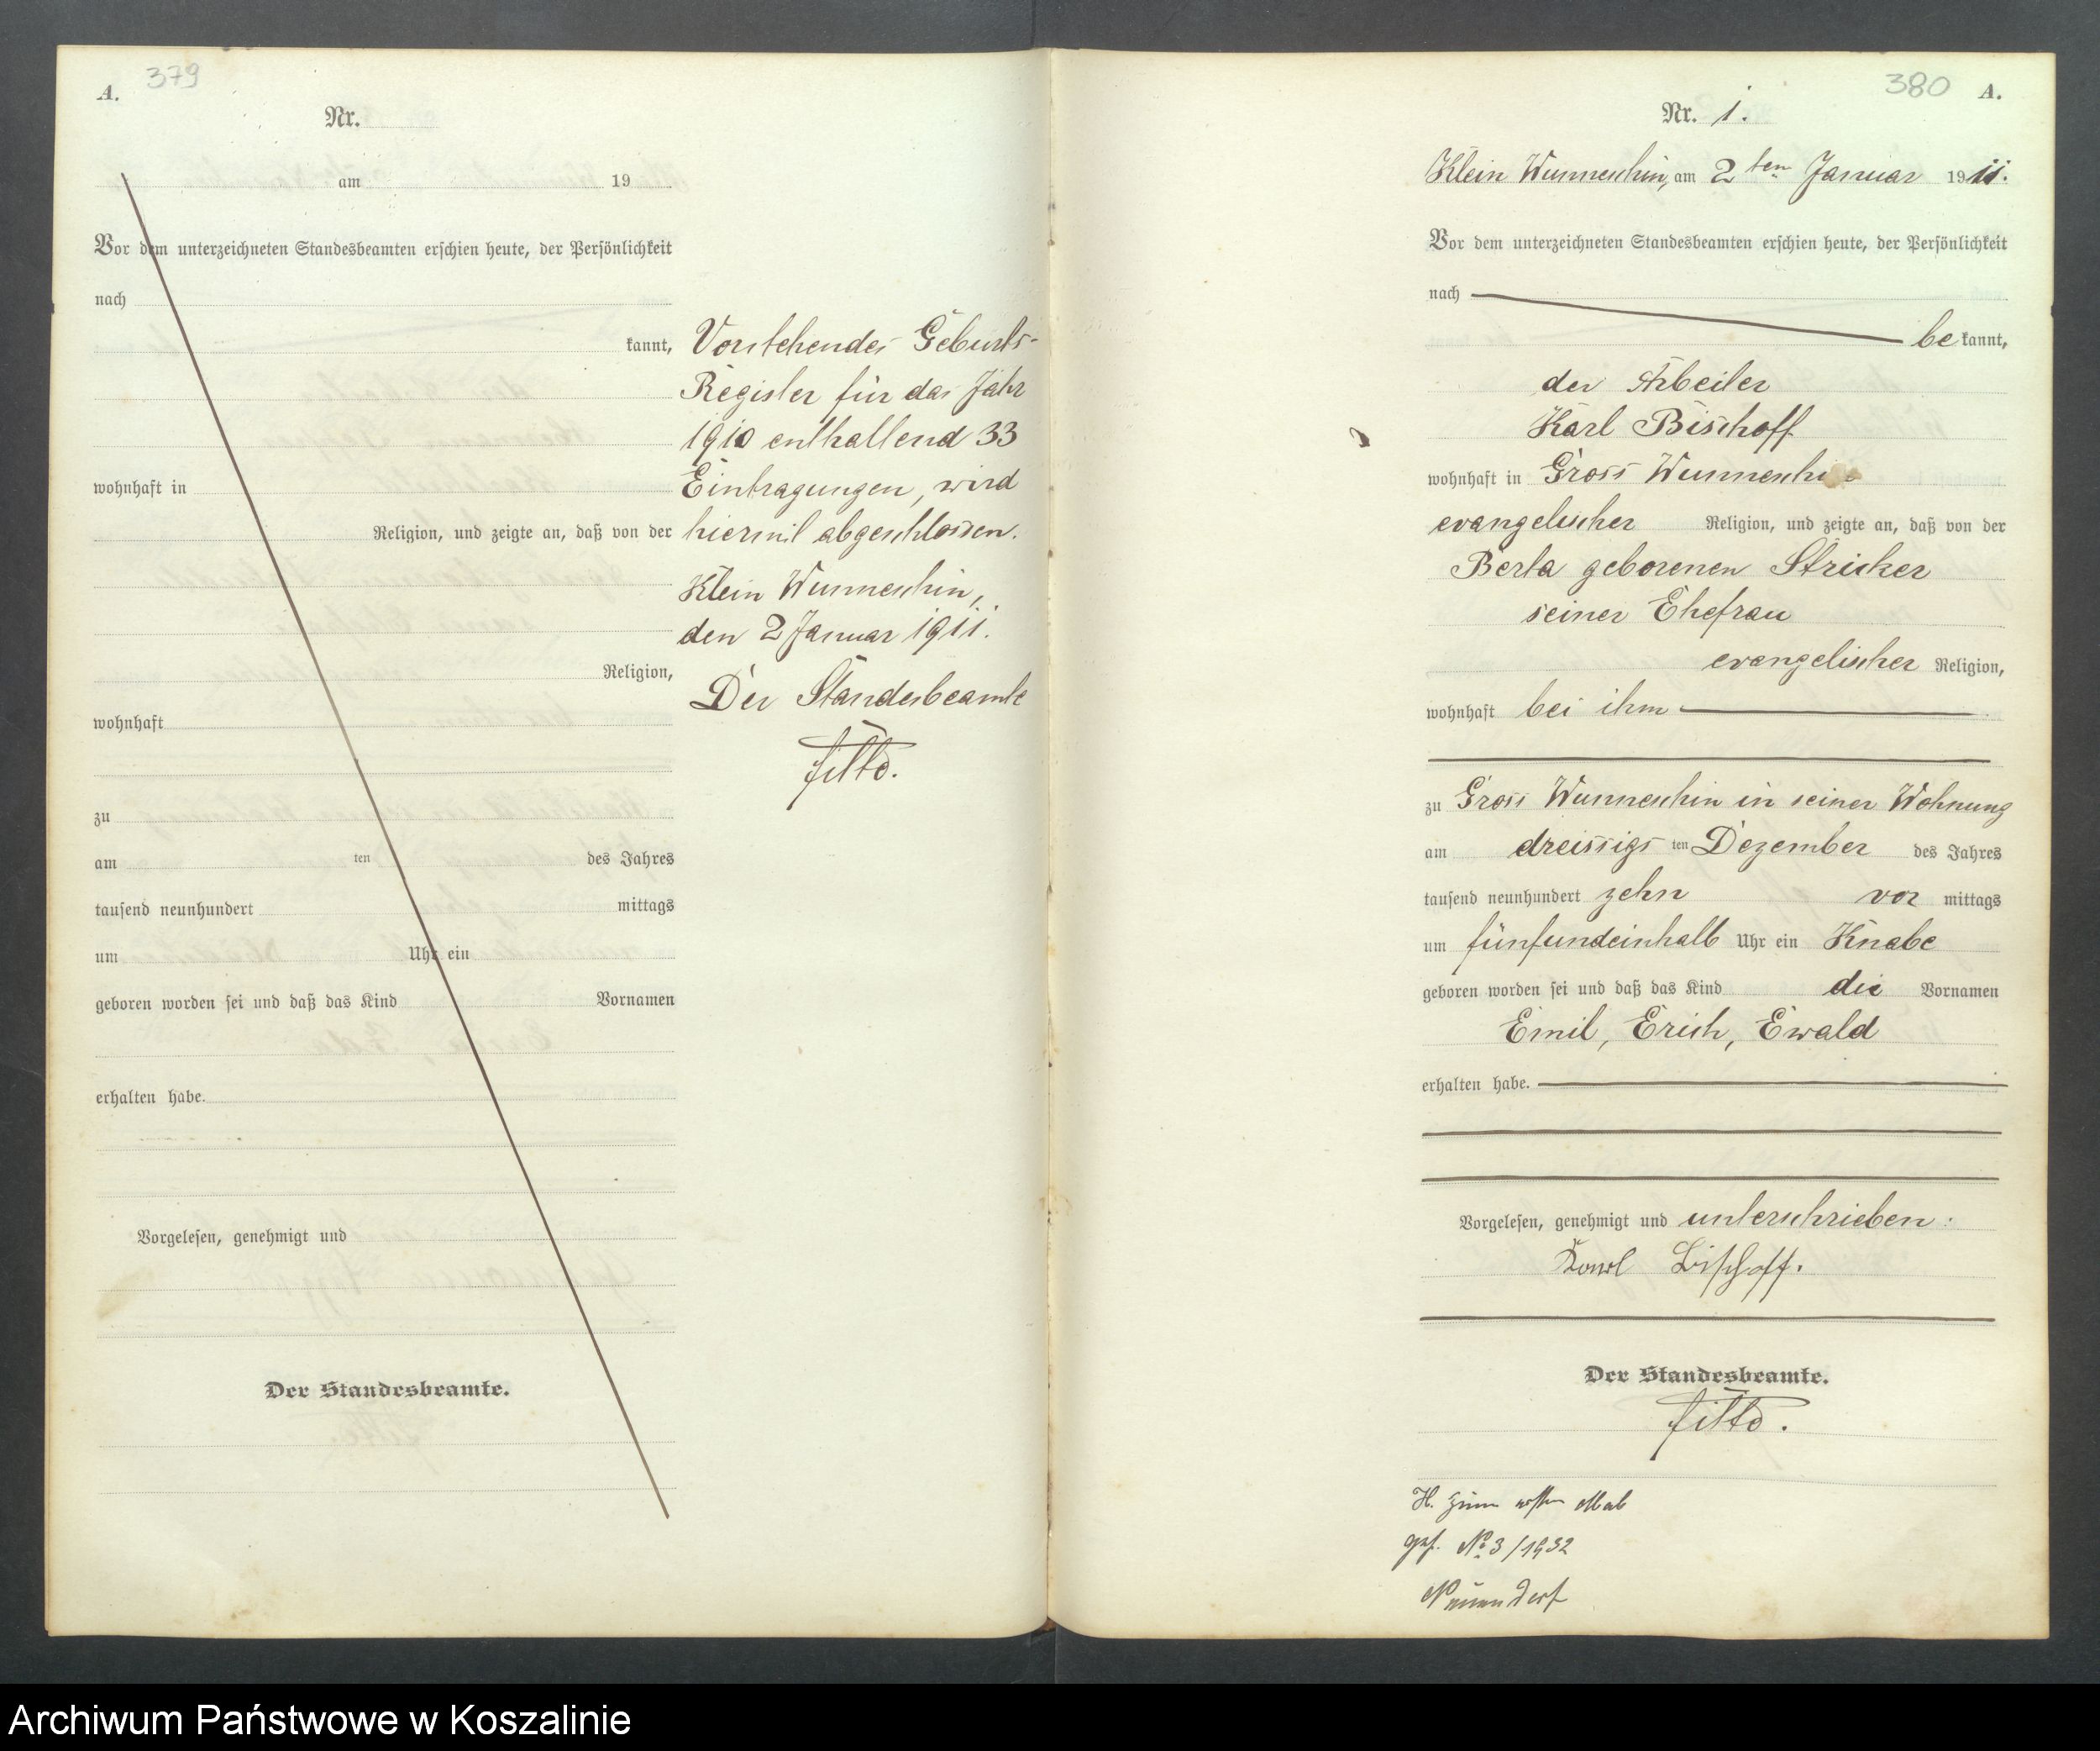 A.
379
Nr.
am 19
Vor dem unterzeichneten Standesbeamten erschien heute, der Persönlichkeit
nach
kannt,
wohnhaft in
Religion, und zeigte an, daß von der
Religion,
wohnhaft
zu
am ten des Jahres
tausend neunhundert mittags
um Uhr ein
geboren worden sei und daß das Kind Vornamen
erhalten habe.
Vorgelesen, genehmigt und
Der Standesbeamte.
Vorstehendes Geburts-
Register für das Jahr
1910 enthaltend 33
Eintragungen, wird
hiermit abgeschlossen.
Klein Wunneschin,
den 2 Januar 1911.
Der Standesbeamte
380
A.
Nr. 1.
Klein Wunneschin, am 2ten Januar 1911.
Vor dem unterzeichneten Standesbeamten erschien heute, der Persönlichkeit
nach
bekannt,
der Arbeiter
Karl Bischoff
wohnhaft in Gross Wunneschin
evangelischer Religion, und zeigte an, daß von der
Berta geborenen Stricker
seiner Ehefrau
evangelischer Religion,
wohnhaft bei ihm
zu Gross Wunneschin in seiner Wohnung
am dreissigs ten Dezember des Jahres
tausend neunhundert zehn vor mittags
um fünfundeinhalb Uhr ein Knabe
geboren worden sei und daß das Kind die Vornamen
Emil, Erich, Ewald
erhalten habe.
Vorgelesen, genehmigt und unterschrieben:
Karl Bischoff.
Der Standesbeamte.
H. zum ersten Mal
No 3/1932
Neuendorf
Archiwum Państwowe w Koszalinie